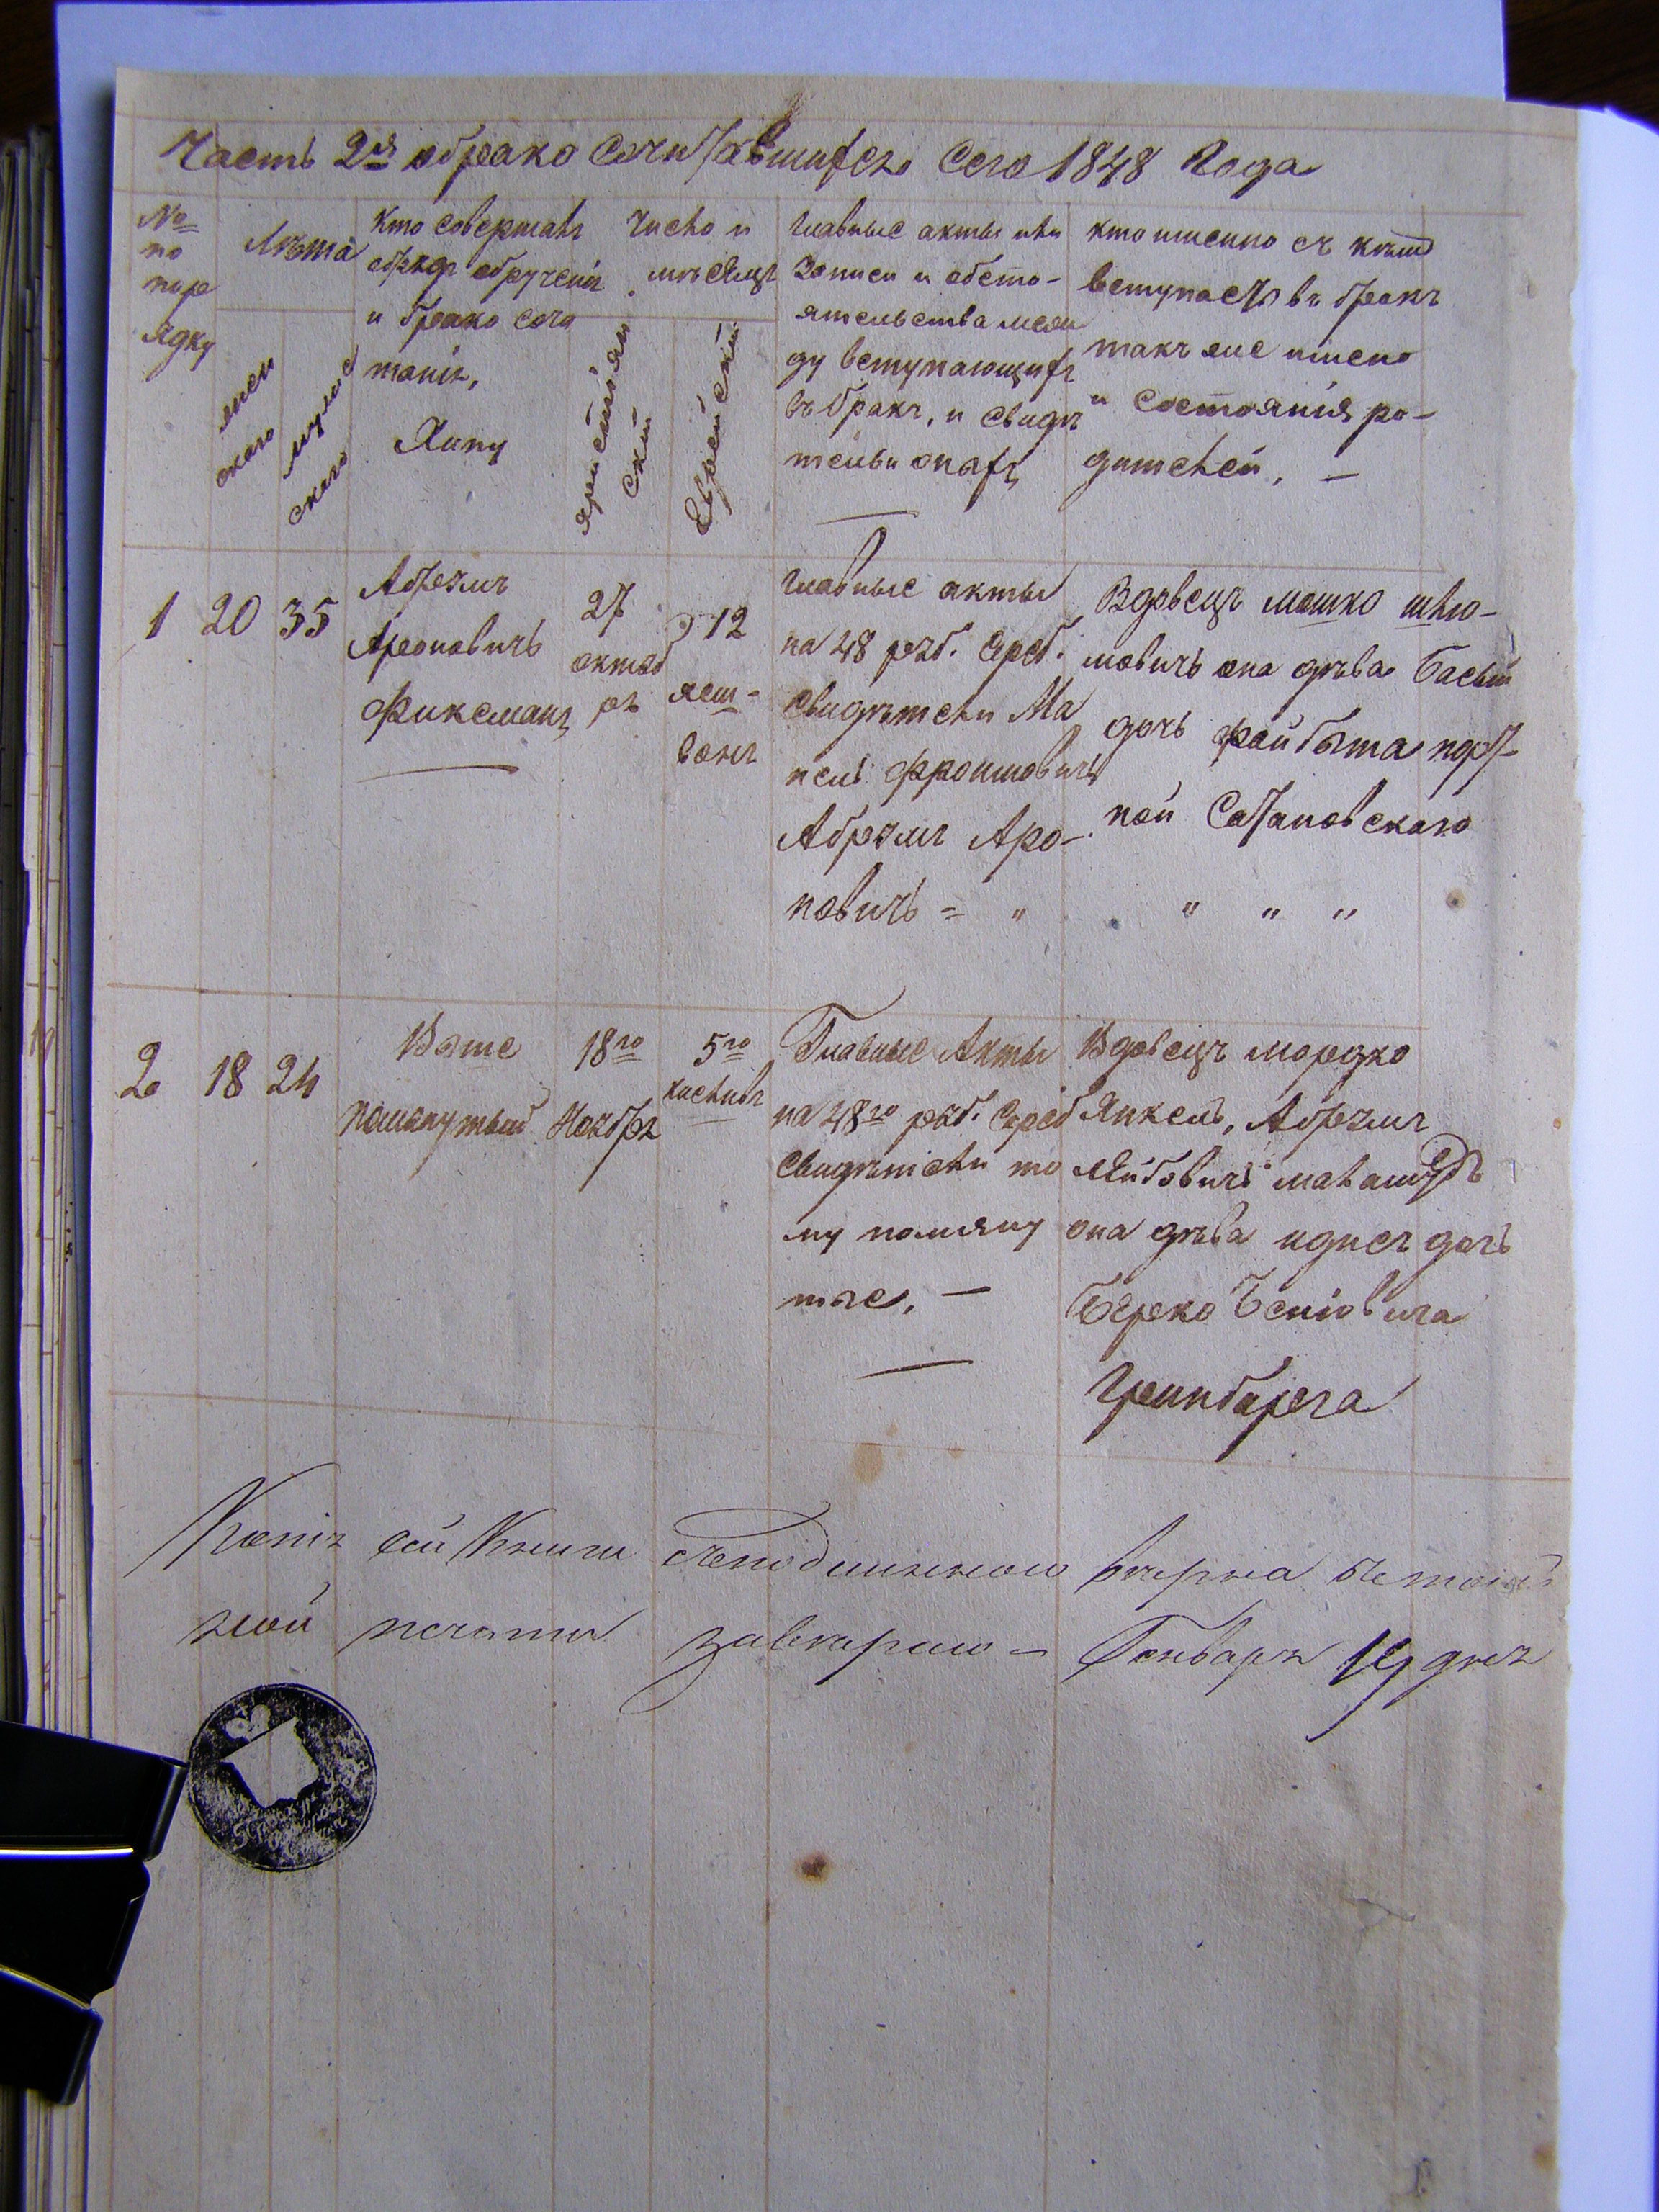 Часть 2я обрако Сочитавшихся Сего 1848 Года
№
по
поре
ядку
Лѣта
жен
скаго
мужес
скаго
Кто совершалъ
обряд обрученія
и брако соче
танія,
Хупу
Число и
мѣсяцъ
христіян
скій
Еврейскій
Главные акты или
Записи и обсто-
ятельства меж
ду вступающихъ
въ бракъ, и свидѣ
тельи онахъ
кто именно съ кѣмъ
вступаетъ въ бракъ
такъ же имено
и состоянія ро-
дителей, —
1
20
35
Абрамъ
Ароновичъ
Фиксманъ
27
октяб
рь
12
хеш-
вонъ
Главные акты
на 48 руб. сереб.
свидѣтели Ма
нель Фроимовичъ
Абрамъ Аро-
новичъ = "
Вдовецъ мошко шлю-
мовичъ она дѣва Басы
дочь Файбыша порт-
ной Сатановскаго
" " "
2
18
24
Выше
помянутый
18го
Ноября
5го
кисливъ
Главные Акты
на 48го руб. Сереб
свидѣтели то
му помяну
тые, —
Вдовецъ мордко
Янкель, Абрамъ
Лейбовичъ
она дѣва идисъ дочь
Берко Беніовича
Гринбарга
Копія сей Книги сподлинною вѣрна
мой печати завѣряю = Генваря 19 дня